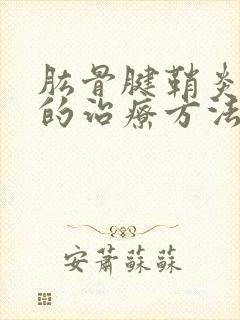 肱骨腱鞘炎
的治療方法
安蕭蘇蘇